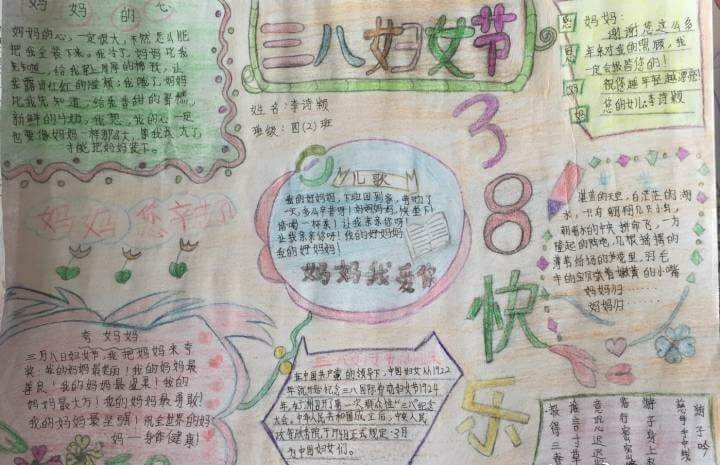 妈妈的心
妈妈的心,一定很大,不然怎么能
把我全装下来。我冷了,妈妈比我
先知道,给我穿上厚厚的棉袄,让
我露着红红的脸蛋;我饿了,妈妈
比我先知道,给我香甜的蛋糕,
新鲜的牛奶,我想,我的心一定
也要像妈妈一样那么大,等我长大了
才能把妈妈装下。
三八妇女节
姓名:李诗颖
班级:四(2)班
感恩妈妈
妈妈:
谢谢您这么多
年来对我的照顾,我
一定会报答您的!
祝您越年轻越漂亮!
您的女儿:李诗颖
38快乐
妈妈您辛苦了
儿歌
我的好妈妈,下班回到家,劳动了
一天,多么辛苦呀!妈妈妈妈,快坐下!
请喝一杯茶!让我亲亲你呀!
让我亲亲你呀!我的好妈妈
我的好妈妈!
妈妈我爱你
湛蓝的天里,白茫茫的湖
水,
隆起的
薄
羊的宝贝张着嫩黄的小嘴
妈妈归……
好妈归……
夸妈妈
三月八日妇女节,我把妈妈来夸
奖:我的妈妈最美丽!我的妈妈最
善良!我的妈妈最温柔!我的
妈妈最大方!我的妈妈最勇敢!
我的妈妈最坚强!祝全世界的妈
妈一身体健康!
在中国共产党的领导下,中国妇女从1922
年就开始纪念三八国际劳动妇女节1924
年,在广州召开了第一次群众性“三八”纪念
大会。中华人民共和国成立后,中央人民
政府政务院于1949年正式规定:3月
为中国妇女们。
游子吟
慈母手中线
游子身上衣
临行密密
意恐迟迟
谁言寸草
报得三春